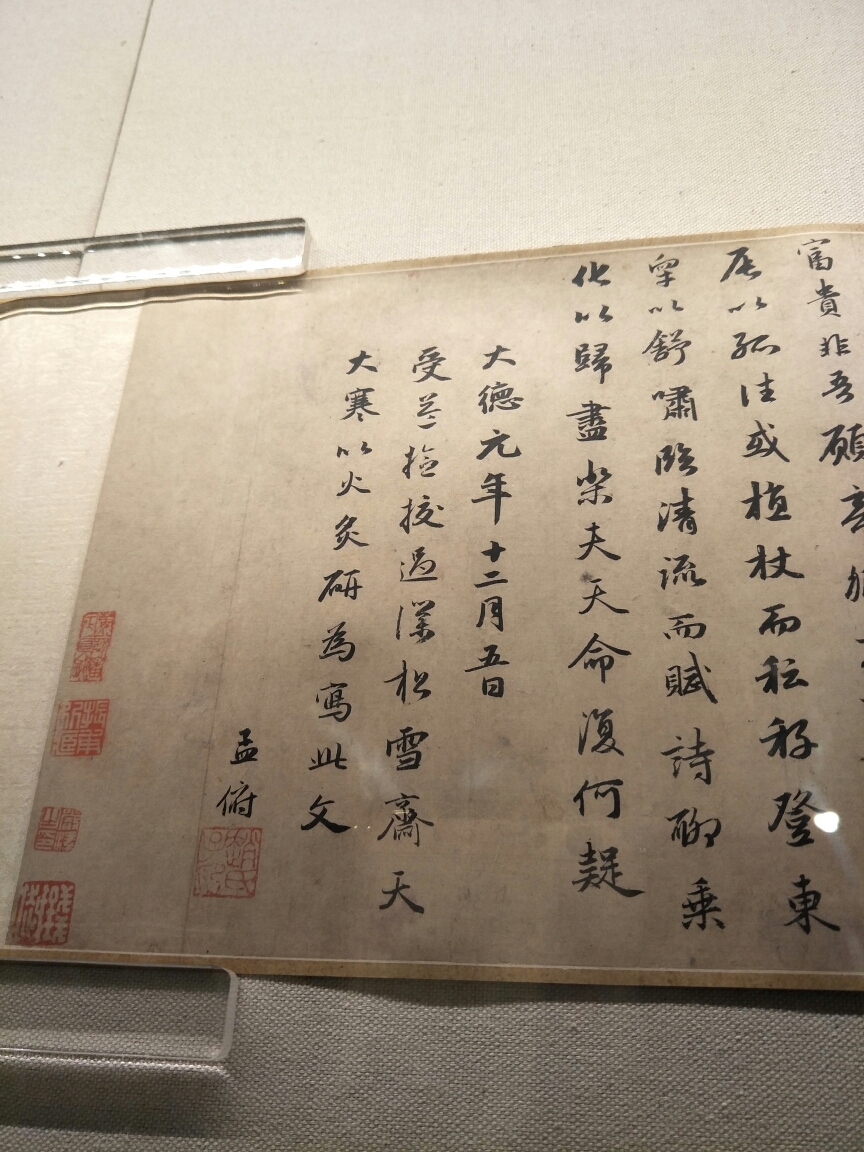 富貴非吾願
辰以孤往或植杖而耘耔登東
皋以舒嘯臨清流而賦詩聊乘
化以歸盡樂夫天命復何疑
大德元年十二月五日
受益撿挍過僕松雪齋天
大寒以火炙研為寫此文
孟俯
趙氏子昂